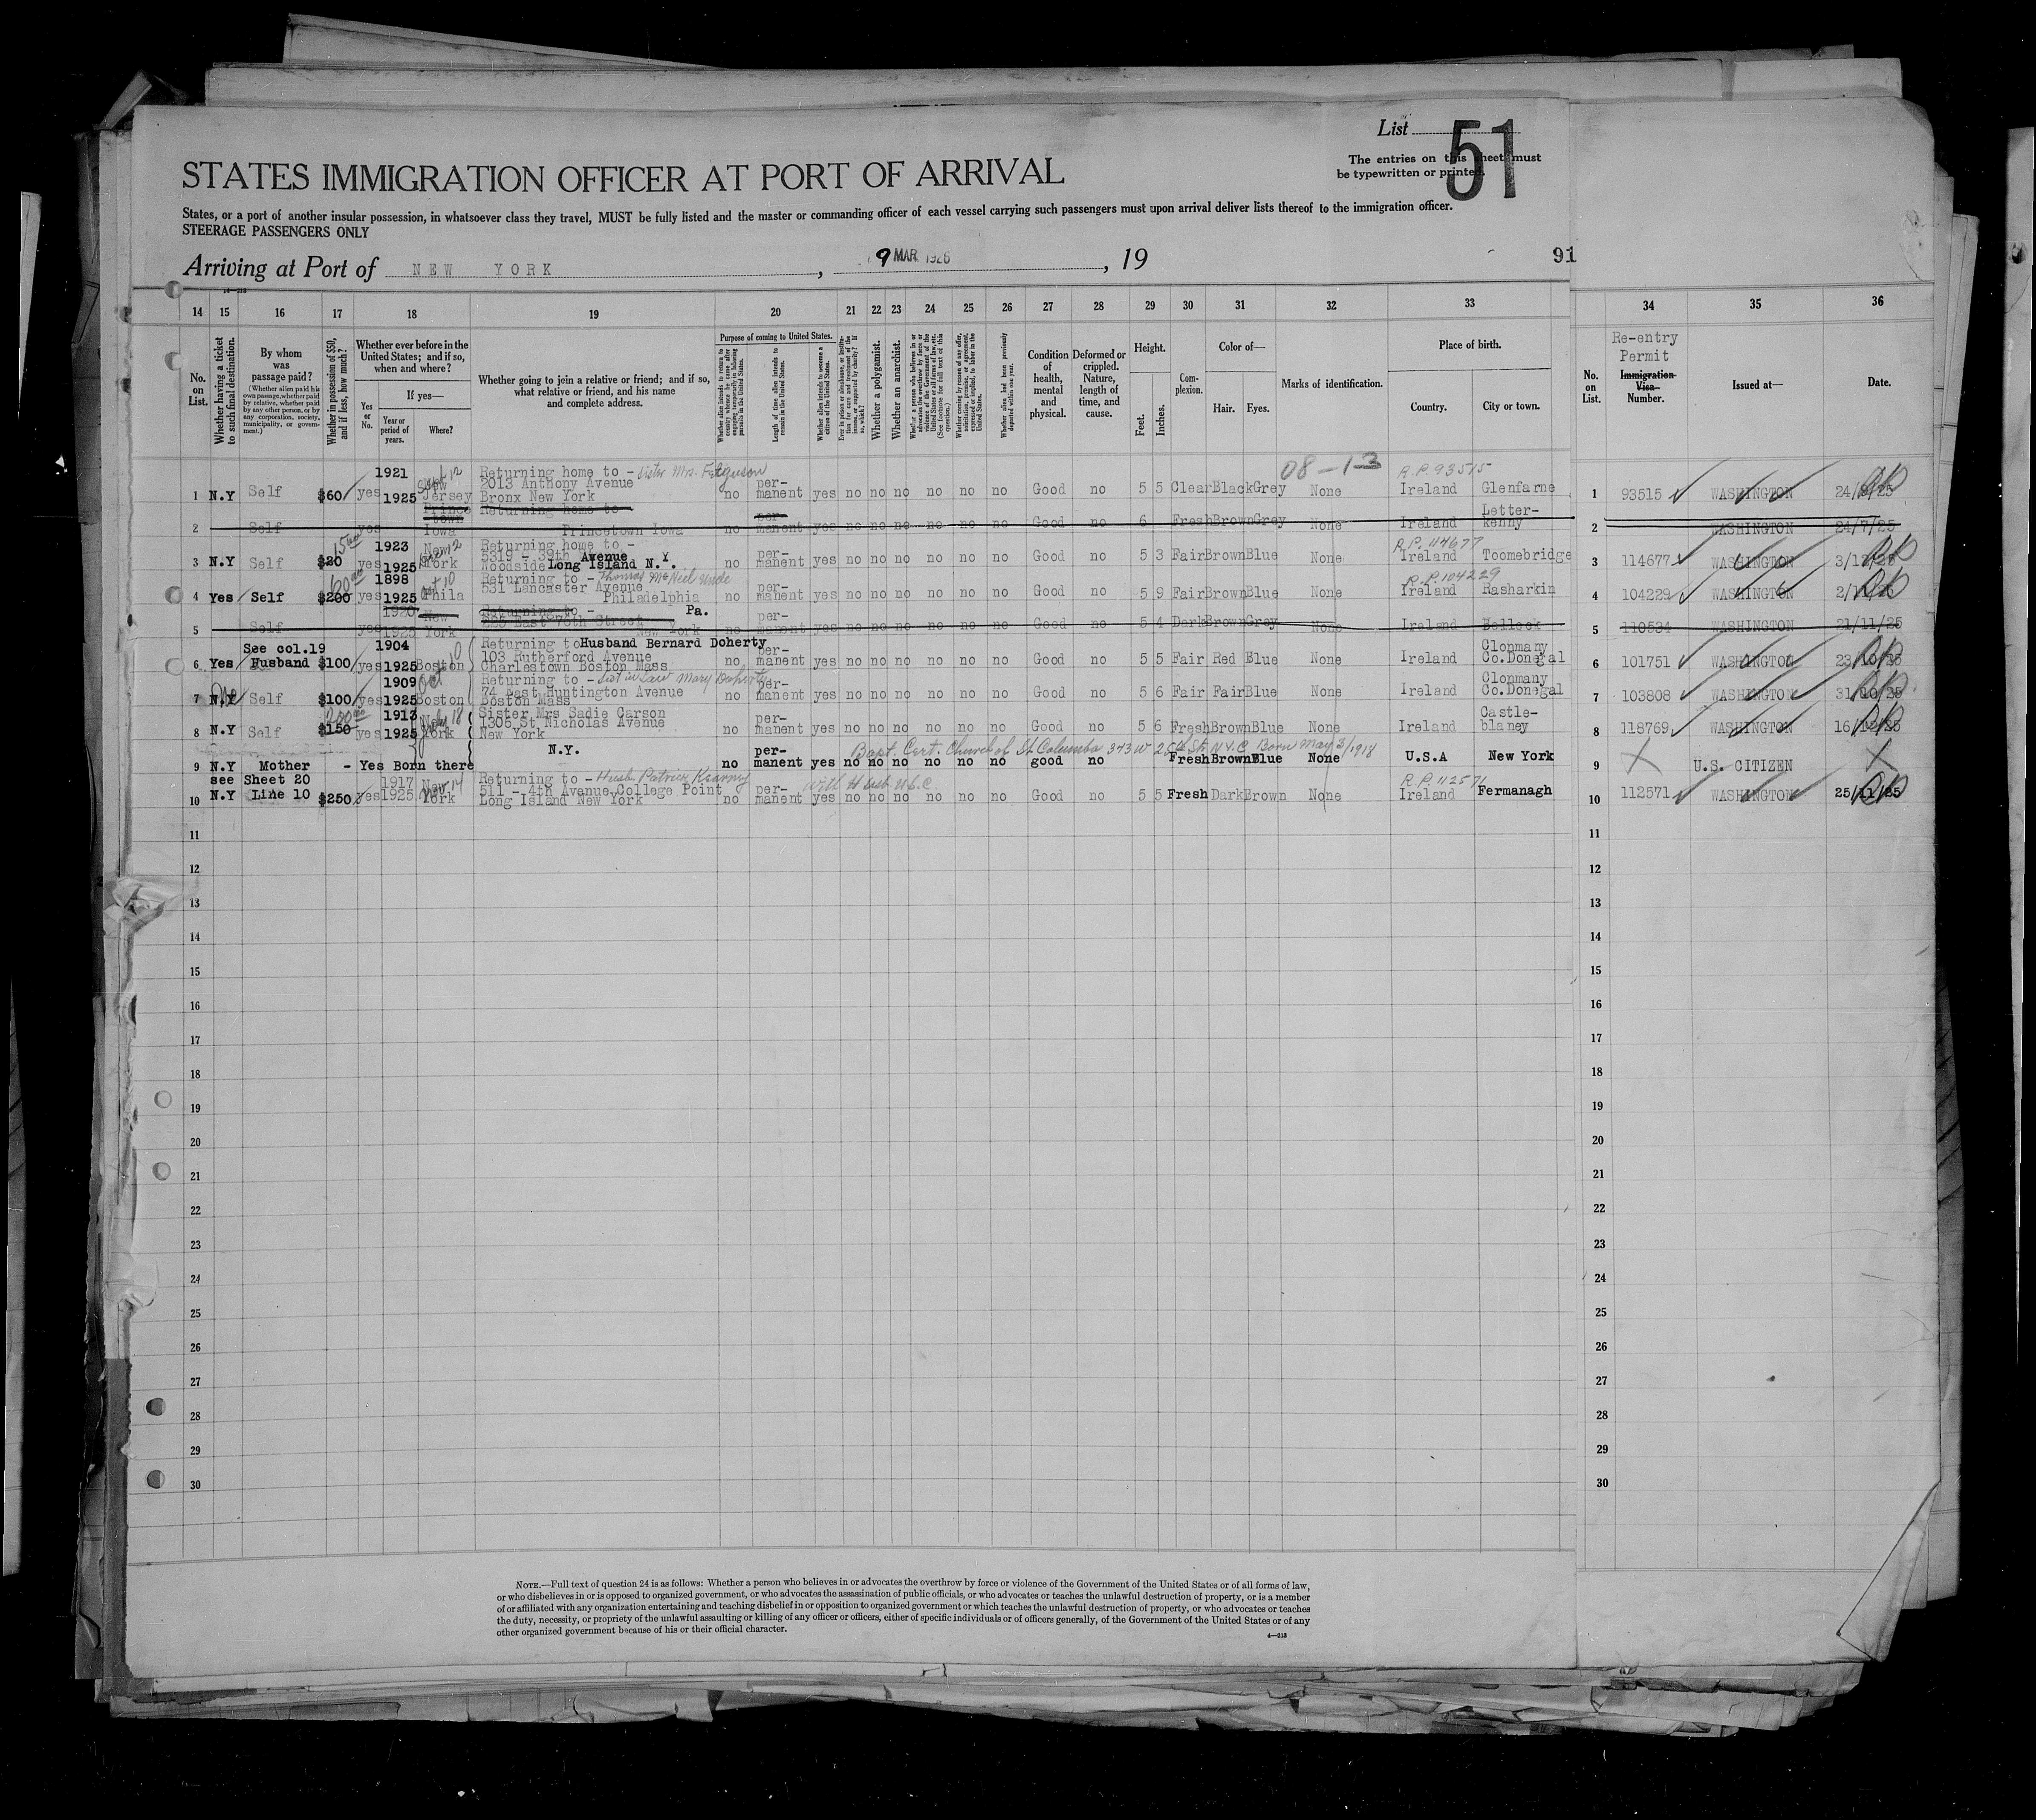 List
51
The entries on this sheet must
be typewritten or printed.
STATES IMMIGRATION OFFICER AT PORT OF ARRIVAL
States, or a port of another insular possession, in whatsoever class they travel, MUST be fully listed and the master or commanding officer of each vessel carrying such passengers must upon arrival deliver lists thereof to the immigration officer.
STEERAGE PASSENGERS ONLY
Arriving at Port of NEW YORK, 9 MAR 1926, 19
91
14 15 16 17 18 19 20 21 22 23 24 25 26 27 28 29 30 31 32 33 34 35 36
No. on List.
Whether having a ticket to such final destination.
By whom was passage paid?
(Whether alien paid his own passage, whether paid by relative, whether paid by any other person, or by any corporation, society, municipality, or government.)
Whether in possession of $50, and if less, how much?
Whether ever before in the United States; and if so, when and where?
If yes—
Yes or No.
Year or period of years.
Where?
Whether going to join a relative or friend; and if so, what relative or friend, and his name and complete address.
Purpose of coming to United States.
Length of time alien intends to remain in the United States.
Whether alien intends to become a citizen of the United States.
Whether a polygamist.
Whether an anarchist.
Whether alien had been previously deported within one year.
Condition of health, mental and physical.
Deformed or crippled. Nature, length of time, and cause.
Height.
Feet. Inches.
Complexion.
Color of—
Hair. Eyes.
Marks of identification.
Place of birth.
Country. City or town.
No. on List.
Re-entry Permit
Immigration Visa Number.
Issued at—
Date.
08-13
R.P. 93515
1 N.Y Self $60 yes 1921 1925 New Jersey Sept 12 Returning home to - Sister Mrs. Ferguson 2013 Anthony Avenue Bronx New York no permanent yes no no no no no no Good no 5 5 Clear Black Grey None Ireland Glenfarne 1 93515 WASHINGTON
2 Self yes Princetown Iowa Returning home to Princetown Iowa no permanent yes no no no no no no Good no 6 Fresh Brown Grey None Ireland Letterkenny 2 WASHINGTON 24/7/25
R.P. 114677
3 N.Y Self $20 yes 1923 1925 New York Returning home to - 5319 - 39th Avenue Woodside Long Island N.Y. no permanent yes no no no no no no Good no 5 3 Fair Brown Blue None Ireland Toomebridge 3 114677 WASHINGTON
R.P. 104229
4 Yes Self $200 yes 1898 1925 Phila Returning to - Thomas McNeil Uncle 531 Lancaster Avenue Philadelphia Pa. no permanent yes no no no no no no Good no 5 9 Fair Brown Blue None Ireland Rasharkin 4 104229 WASHINGTON
5 Self yes 1920 1925 New York Returning to - East 76th Street New York no permanent yes no no no no no no Good no 5 4 Dark Brown Grey None Ireland Belleek 5 110534 WASHINGTON 21/11/25
6 Yes See col.19 Husband $100 yes 1904 1925 Boston Returning to Husband Bernard Doherty 103 Rutherford Avenue Charlestown Boston Mass no permanent yes no no no no no no Good no 5 5 Fair Red Blue None Ireland Clonmany Co.Donegal 6 101751 WASHINGTON 23/10/25
7 N.Y Self $100 yes 1909 1925 Boston Oct Returning to - Sist in Law Mary Doherty 74 East Huntington Avenue Boston Mass no permanent yes no no no no no no Good no 5 6 Fair Fair Blue None Ireland Clonmany Co.Donegal 7 103808 WASHINGTON 31/10/25
8 N.Y Self $150 200 yes 1913 1925 York Sister Mrs Sadie Carson 1306 St Nicholas Avenue New York no permanent yes no no no no no no Good no 5 6 Fresh Brown Blue None Ireland Castleblaney 8 118769 WASHINGTON 16/12/25
Bapt. Cert. Church of St Columba 343 W 25th St. N.Y.C Born May 3/1918
9 N.Y Mother - Yes Born there N.Y. no permanent yes no no no no no no good no Fresh Brown Blue None U.S.A New York 9 X U.S. CITIZEN X
With Husb N.Y.C
R.P. 112571
10 see Sheet 20 Line 10 N.Y $250 yes 1917 1925 New York Nov 14 Returning to - Husb. Patrick Kearney 511 - 4th Avenue College Point Long Island New York no permanent yes no no no no no no Good no 5 5 Fresh Dark Brown None Ireland Fermanagh 10 112571 WASHINGTON 25/11/25
11 11
12 12
13 13
14 14
15 15
16 16
17 17
18 18
19 19
20 20
21 21
22 22
23 23
24 24
25 25
26 26
27 27
28 28
29 29
30 30
NOTE.—Full text of question 24 is as follows: Whether a person who believes in or advocates the overthrow by force or violence of the Government of the United States or of all forms of law,
or who disbelieves in or is opposed to organized government, or who advocates the assassination of public officials, or who advocates or teaches the unlawful destruction of property, or is a member
of or affiliated with any organization entertaining and teaching disbelief in or opposition to organized government or which teaches the unlawful destruction of property, or who advocates or teaches
the duty, necessity, or propriety of the unlawful assaulting or killing of any officer or officers, either of specific individuals or of officers generally, of the Government of the United States or of any
other organized government because of his or their official character.
4—213